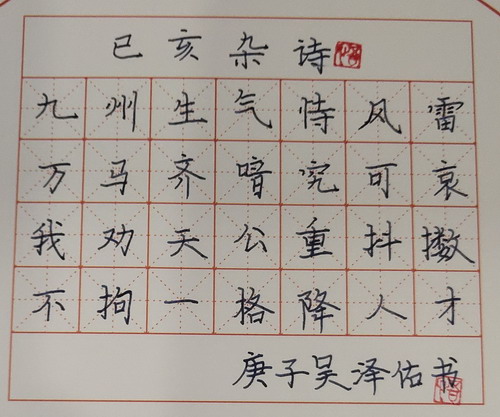 已亥杂诗
九州生气恃风雷
万马齐喑究可哀
我劝天公重抖擞
不拘一格降人才
庚子吴泽佑书